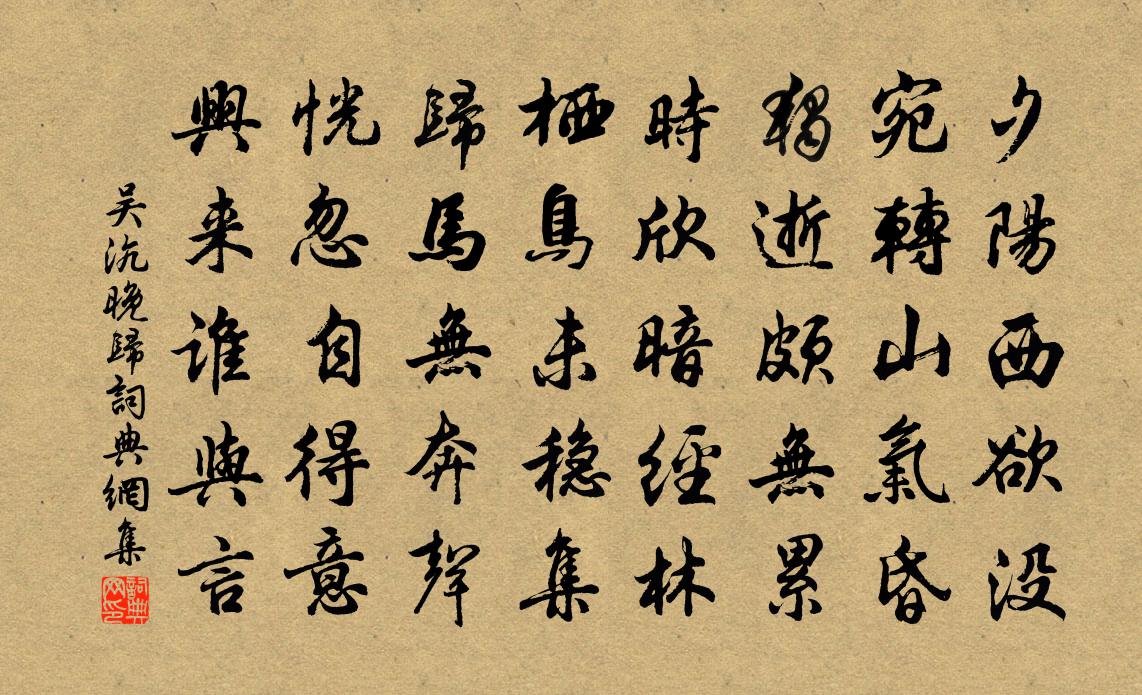 夕陽西欲没
宛轉山氣昏
獨逝頗無累
時欣暗經林
栖鳥未稳集
歸馬無奔聲
恍忽自得意
興来誰與言
吴沆晚歸詞典網集
詞典网印